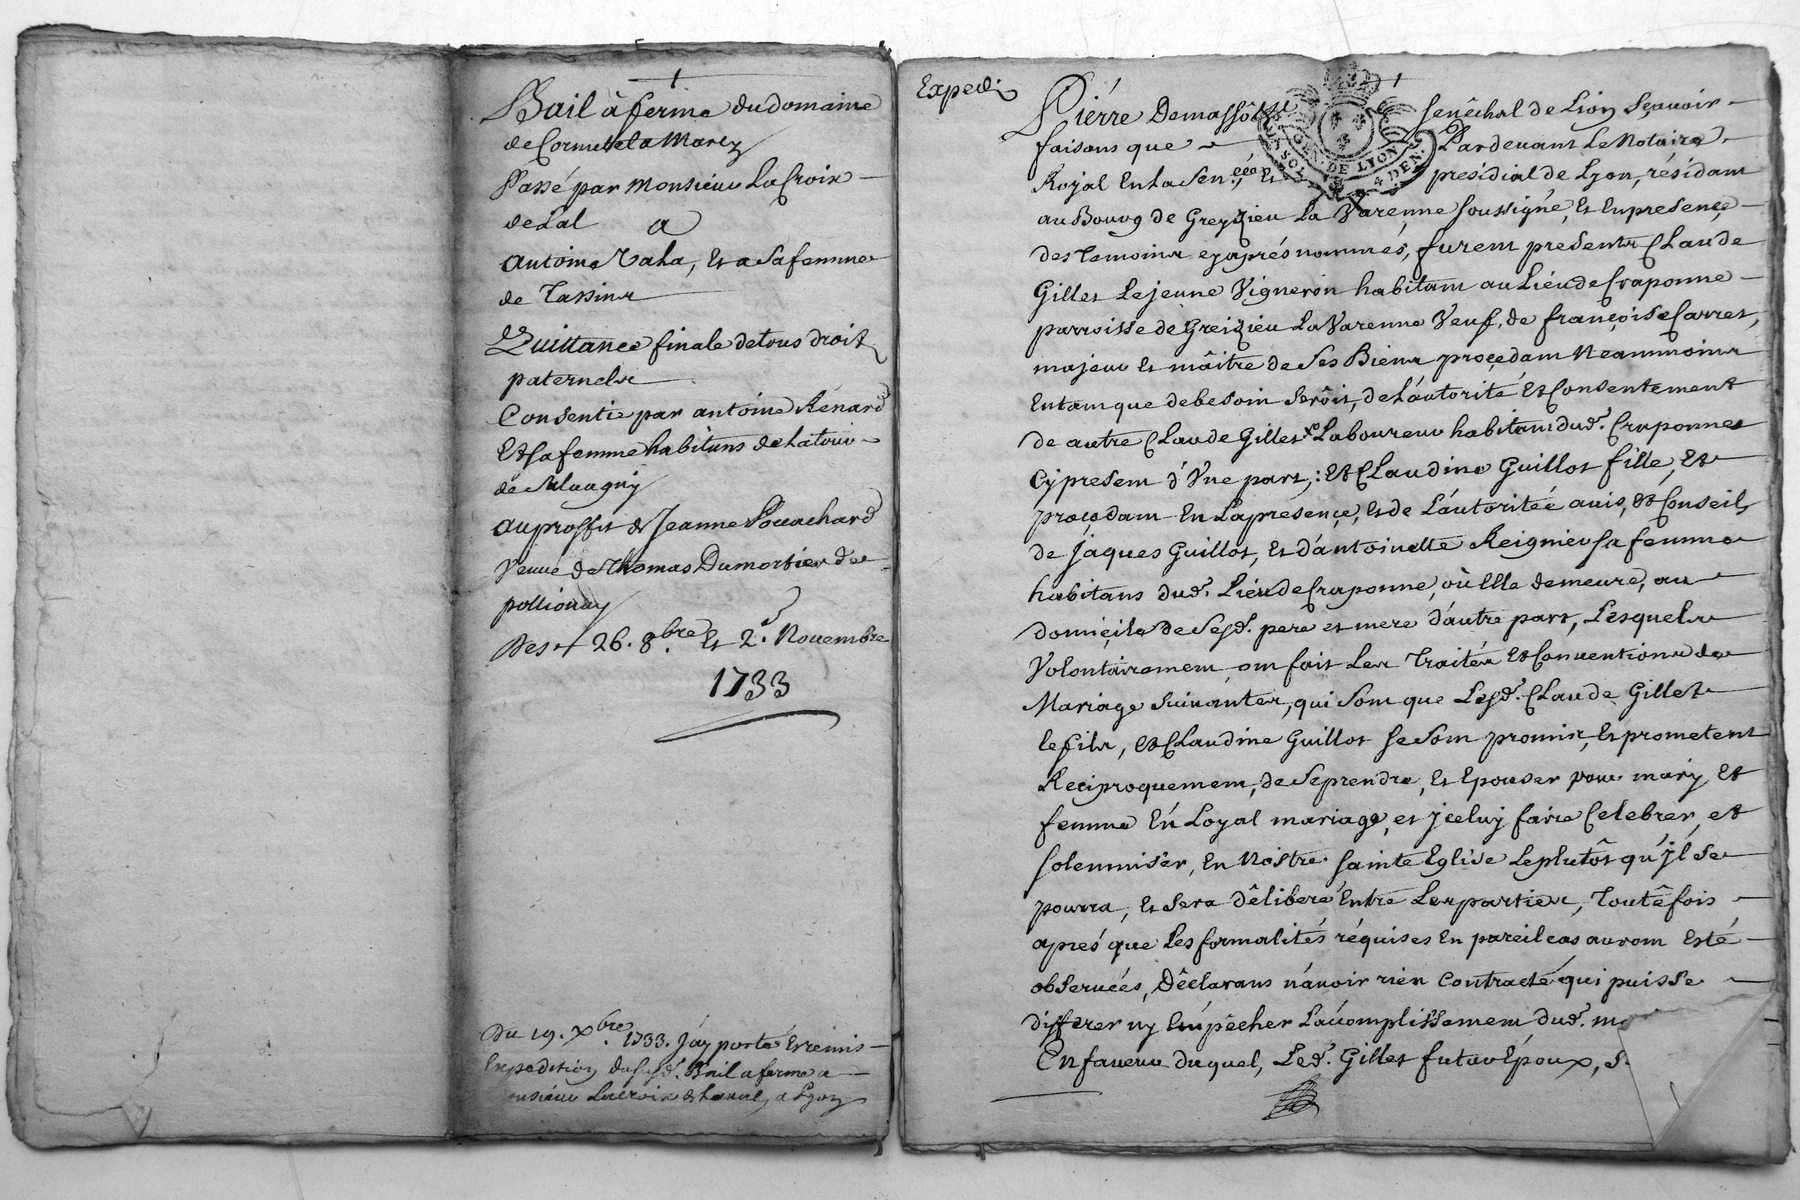 Bail à ferme du domaine
de
Passé par Monsieur LaCroix
de Lal a
Antoine Vaha, Et a Sa femme
de Tassins
Quittance finale de tous droits
paternels
Consentie par antoine Rénard
Et Sa femme habitans de La tour
de Saluagny
au proffit de Jeanne Pouachard
Veuve de Thomas Dumortier de
pollionay
Des 26. 8.bre Et 2.e Nouembre
1733
Du 19. Xbre 1733. J'ay porté Et remis
Expedition dusd. Bail a ferme a
Monsieur Lacroix de Laual, a Lyon
Expedié
Pierre Demassô Senêchal de Lion Sçauoir
faisons que Pardeuant Le Notaire
Royal En La Sen.ééé Et présidial de Lyon, résidant
au Bourg de Greyzieu La Varenne Soussigné, Et En presençe
des Temoins cy aprés nommés, furent presents Claude
Gillet Le jeune Vigneron habitant au Liéu de Craponne
parroisse de Greizieu La Varenne Veuf, de françoise Carret,
majeur Et mâitre de Ses Biens proçedant Neantmoins
En tant que de besoin Serôit, de L'áutorité Et Consentement
de autre Claude Gillet Laboureur habitant dud. Craponne
Cy present d'Vne part, : Et Claudine Guillot fille, Et
proçedant En La presençe, Et de L'áutoritéé auis, Et Conseils
de Jaques Guillot, Et d'antoinette Reignier Sa femme
habitans dud. Liéu de Craponne, où Elle demeure, au
domiçile de Sesd. pere et mere d'autre part, Lesquels
Volontairement, ont fait Les Traités Et Conuentions de
Mariage Suiuantes, qui Sont que Lesd. Claude Gillet
le fils, Et Claudine Guillot Se Sont promis, Et prometent
Reciproquement, de Se prendre, Et Epouser pour mary, Et
femme En Loyal mariage, et jceluy faire Celebrer, et
Solenniser, En Nostre Sainte Eglise Le plutôt qu'jl Se
pourra, Et Sera dêliberé Entre Les parties, Toutêfois
aprés que Les formalités réquises En pareil cas auront Esté
obseruées, Dêclarans n'áuoir rien Contracté qui puisse
differer ny Empêcher L'acomplissement dud. m
En faueur duquel, Led. Gillet futur Epoux, S.